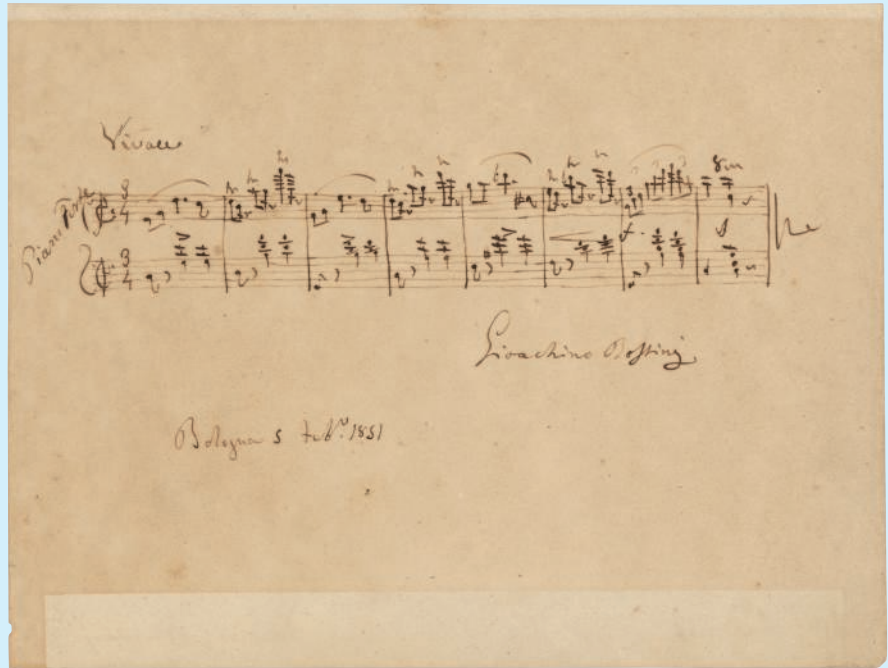 Vivace
Piano Forte
3
4
3
4
Gioachino Rossini
Bologna 5 Febb.º 1851